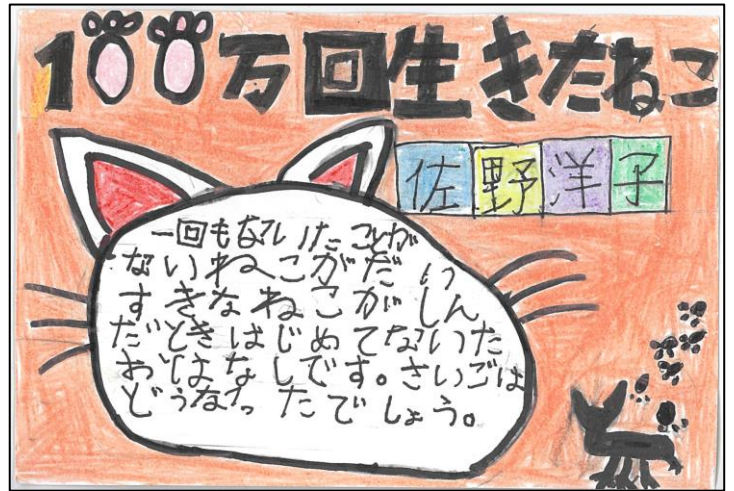 100万回生きたねこ
佐野洋子
一回もないたことが
ないねこがだい
すきなねこがしん
だときはじめてないた
おはなしです。さいごは
どうなったでしょう。